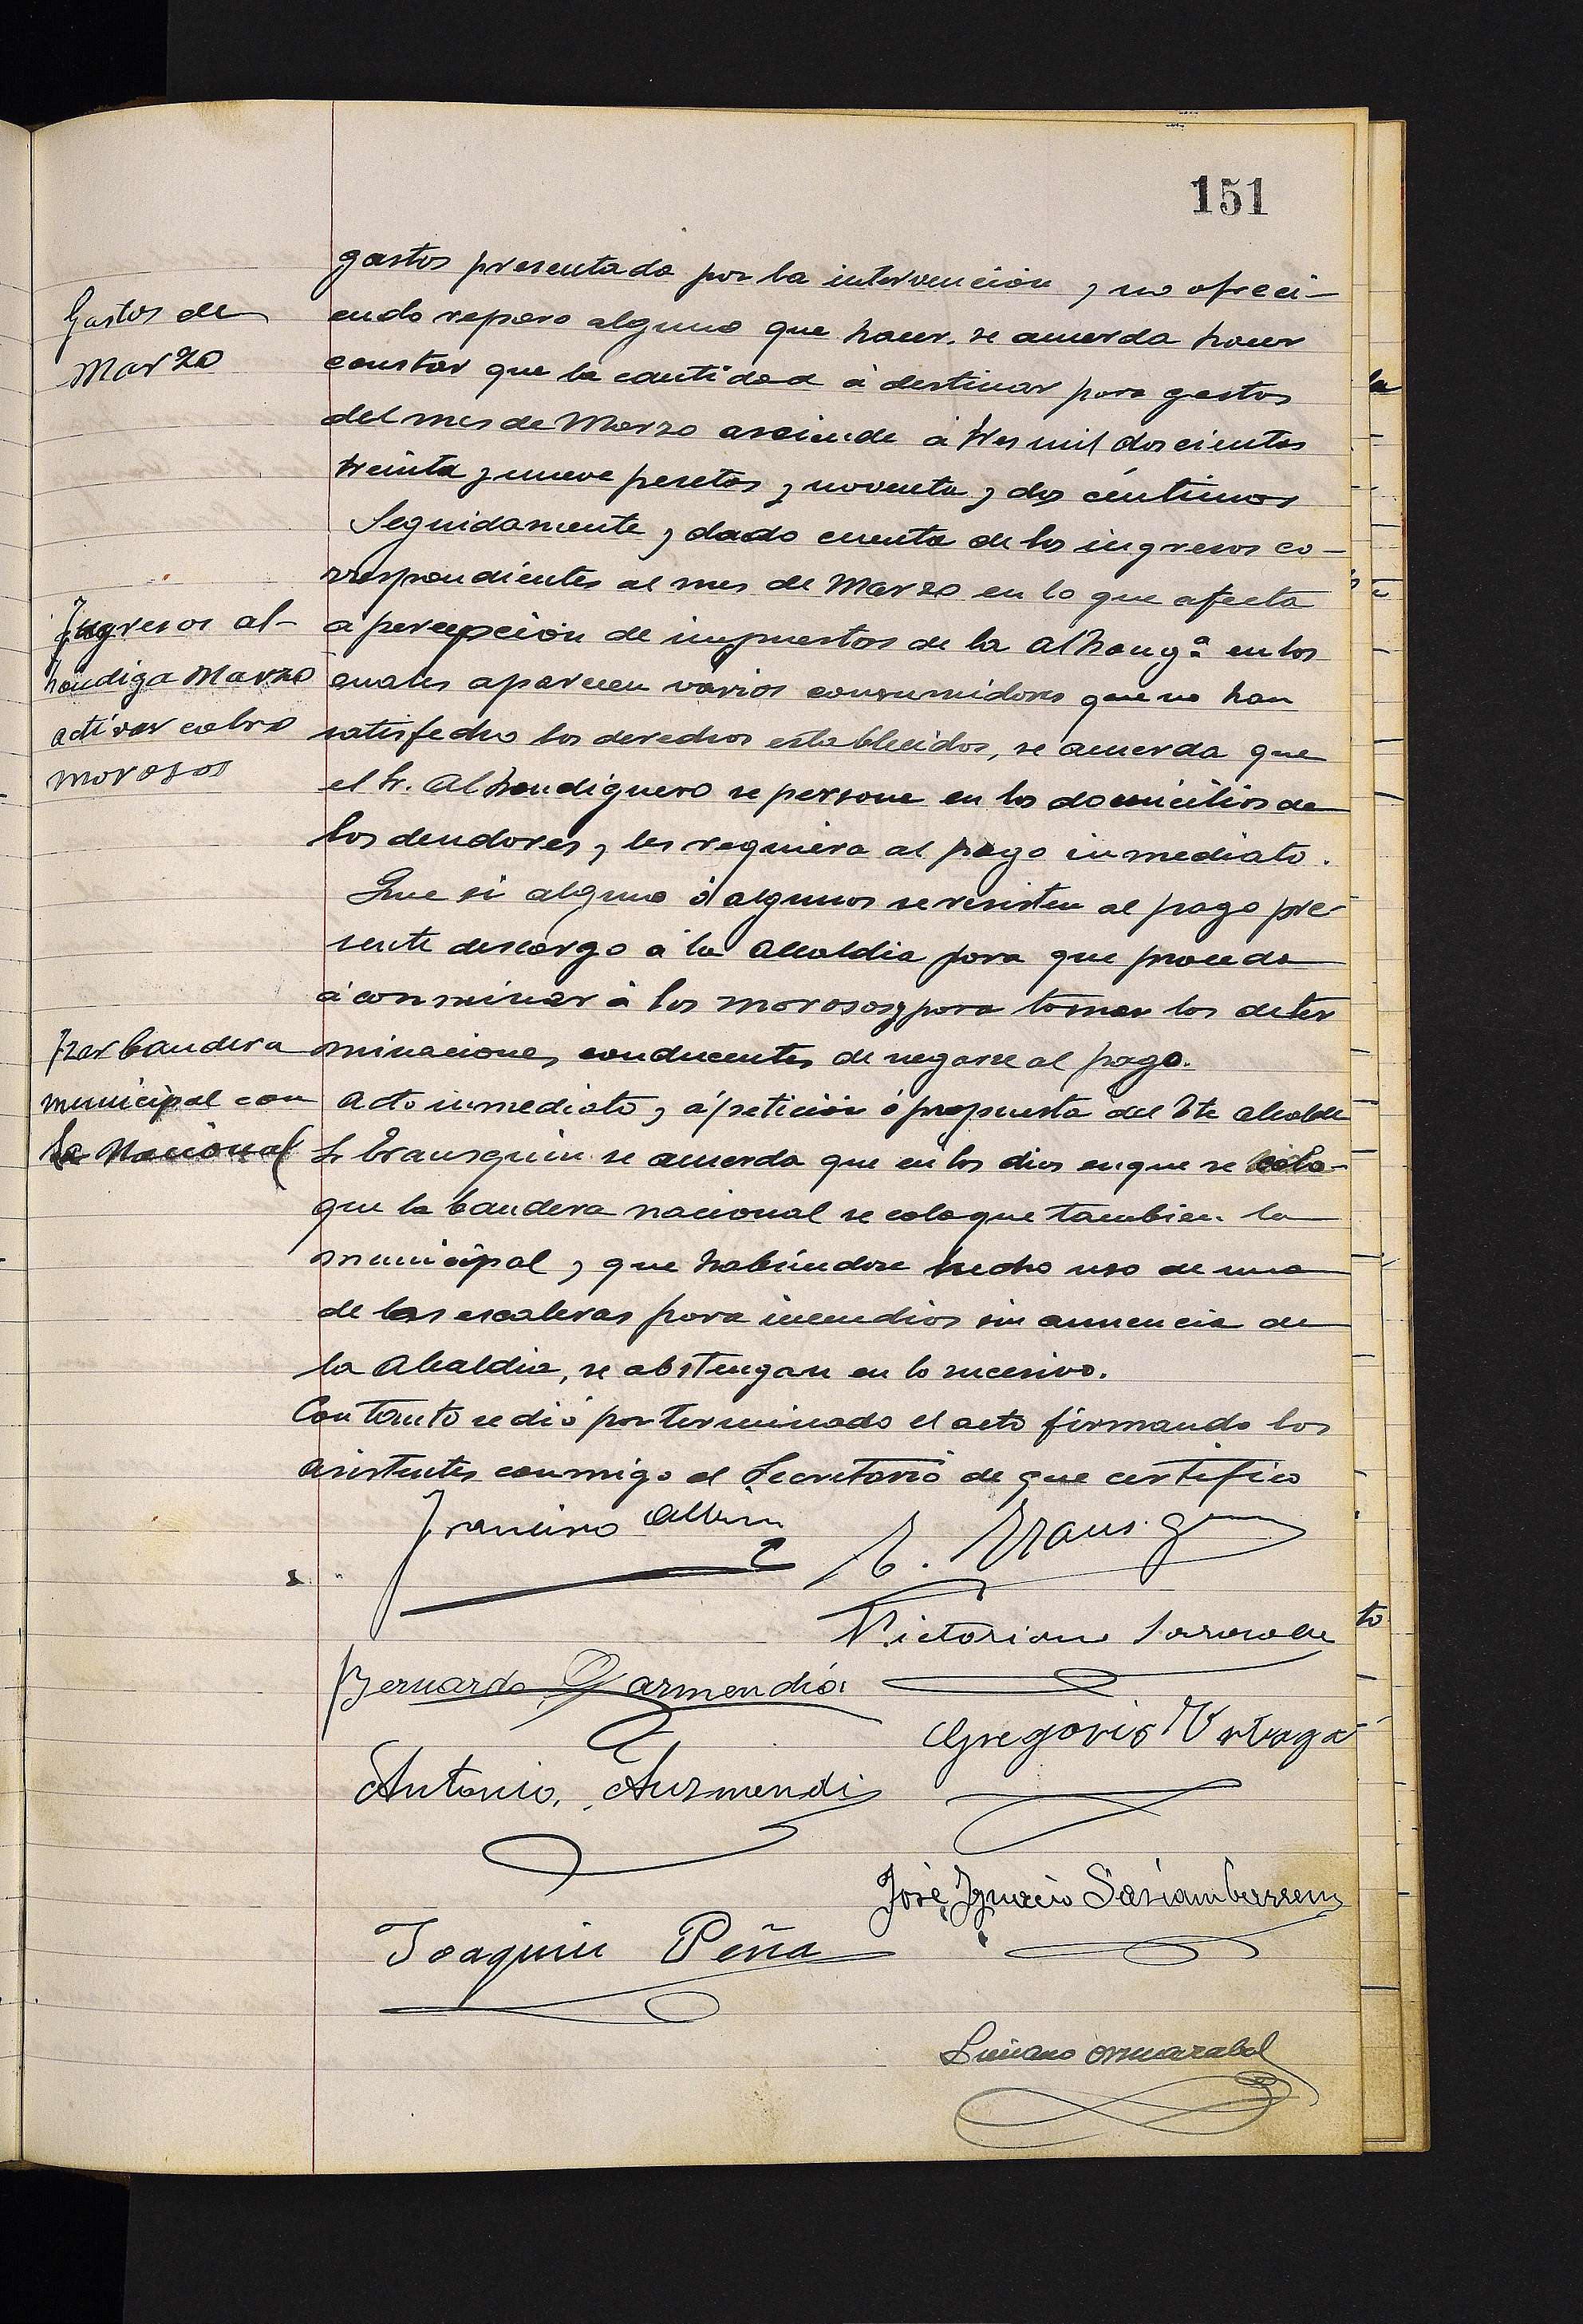 151
gastos presentado por la intervencion y no ofreci-
Gastos de
Marzo
endo reparo alguno que hacer. se acuerda hacer
constar que la cantidad á destinar para gastos
del mes de Marzo asciende á tres mil doscientas
treinta y nueve pesetas y noventa y dos céntimos
Seguidamente y dado cuenta de los ingresos co-
rrespondientes al mes de Marzo en lo que afecta
Ingresos al-
hondiga Marzo
activar cobro
morosos
á percepción de impuestos de la Alhongª en los
cuales aparecen varios consumidores que no han
satisfecho los derechos establecidos, se acuerda que
el Sr. Alhondiguero se persone en los domicilios de
los deudores y les requiera al pago inmediato.
Que si alguno ó algunos se resisten al pago pre-
sente descargo á la Alcaldia para que proceda
á conminar á los morosos y para tomar las deter
Izar bandera
municipal con
la Nacional
minaciones conducentes de negarse al pago.
Acto inmediato y á petición ó propuesta del Tte Alcalde
Sr Erausquin se acuerda que en los dias en que se colo-
que la bandera nacional se coloque tambien la
municipal y que habiendose hecho uso de una
de las escaleras para incendios sin anuencia de
la Alcaldia, se abstengan en lo sucesivo.
Con tanto se dió por terminado el acto firmando los
asistentes conmigo el Secretario de que certifico
Francisco
Erausquin
Victoriano
Bernardo Garmendia
Gregorio
Antonio Auzmendi
José Ignacio
Joaquin Peña
Luciano Ormazabal